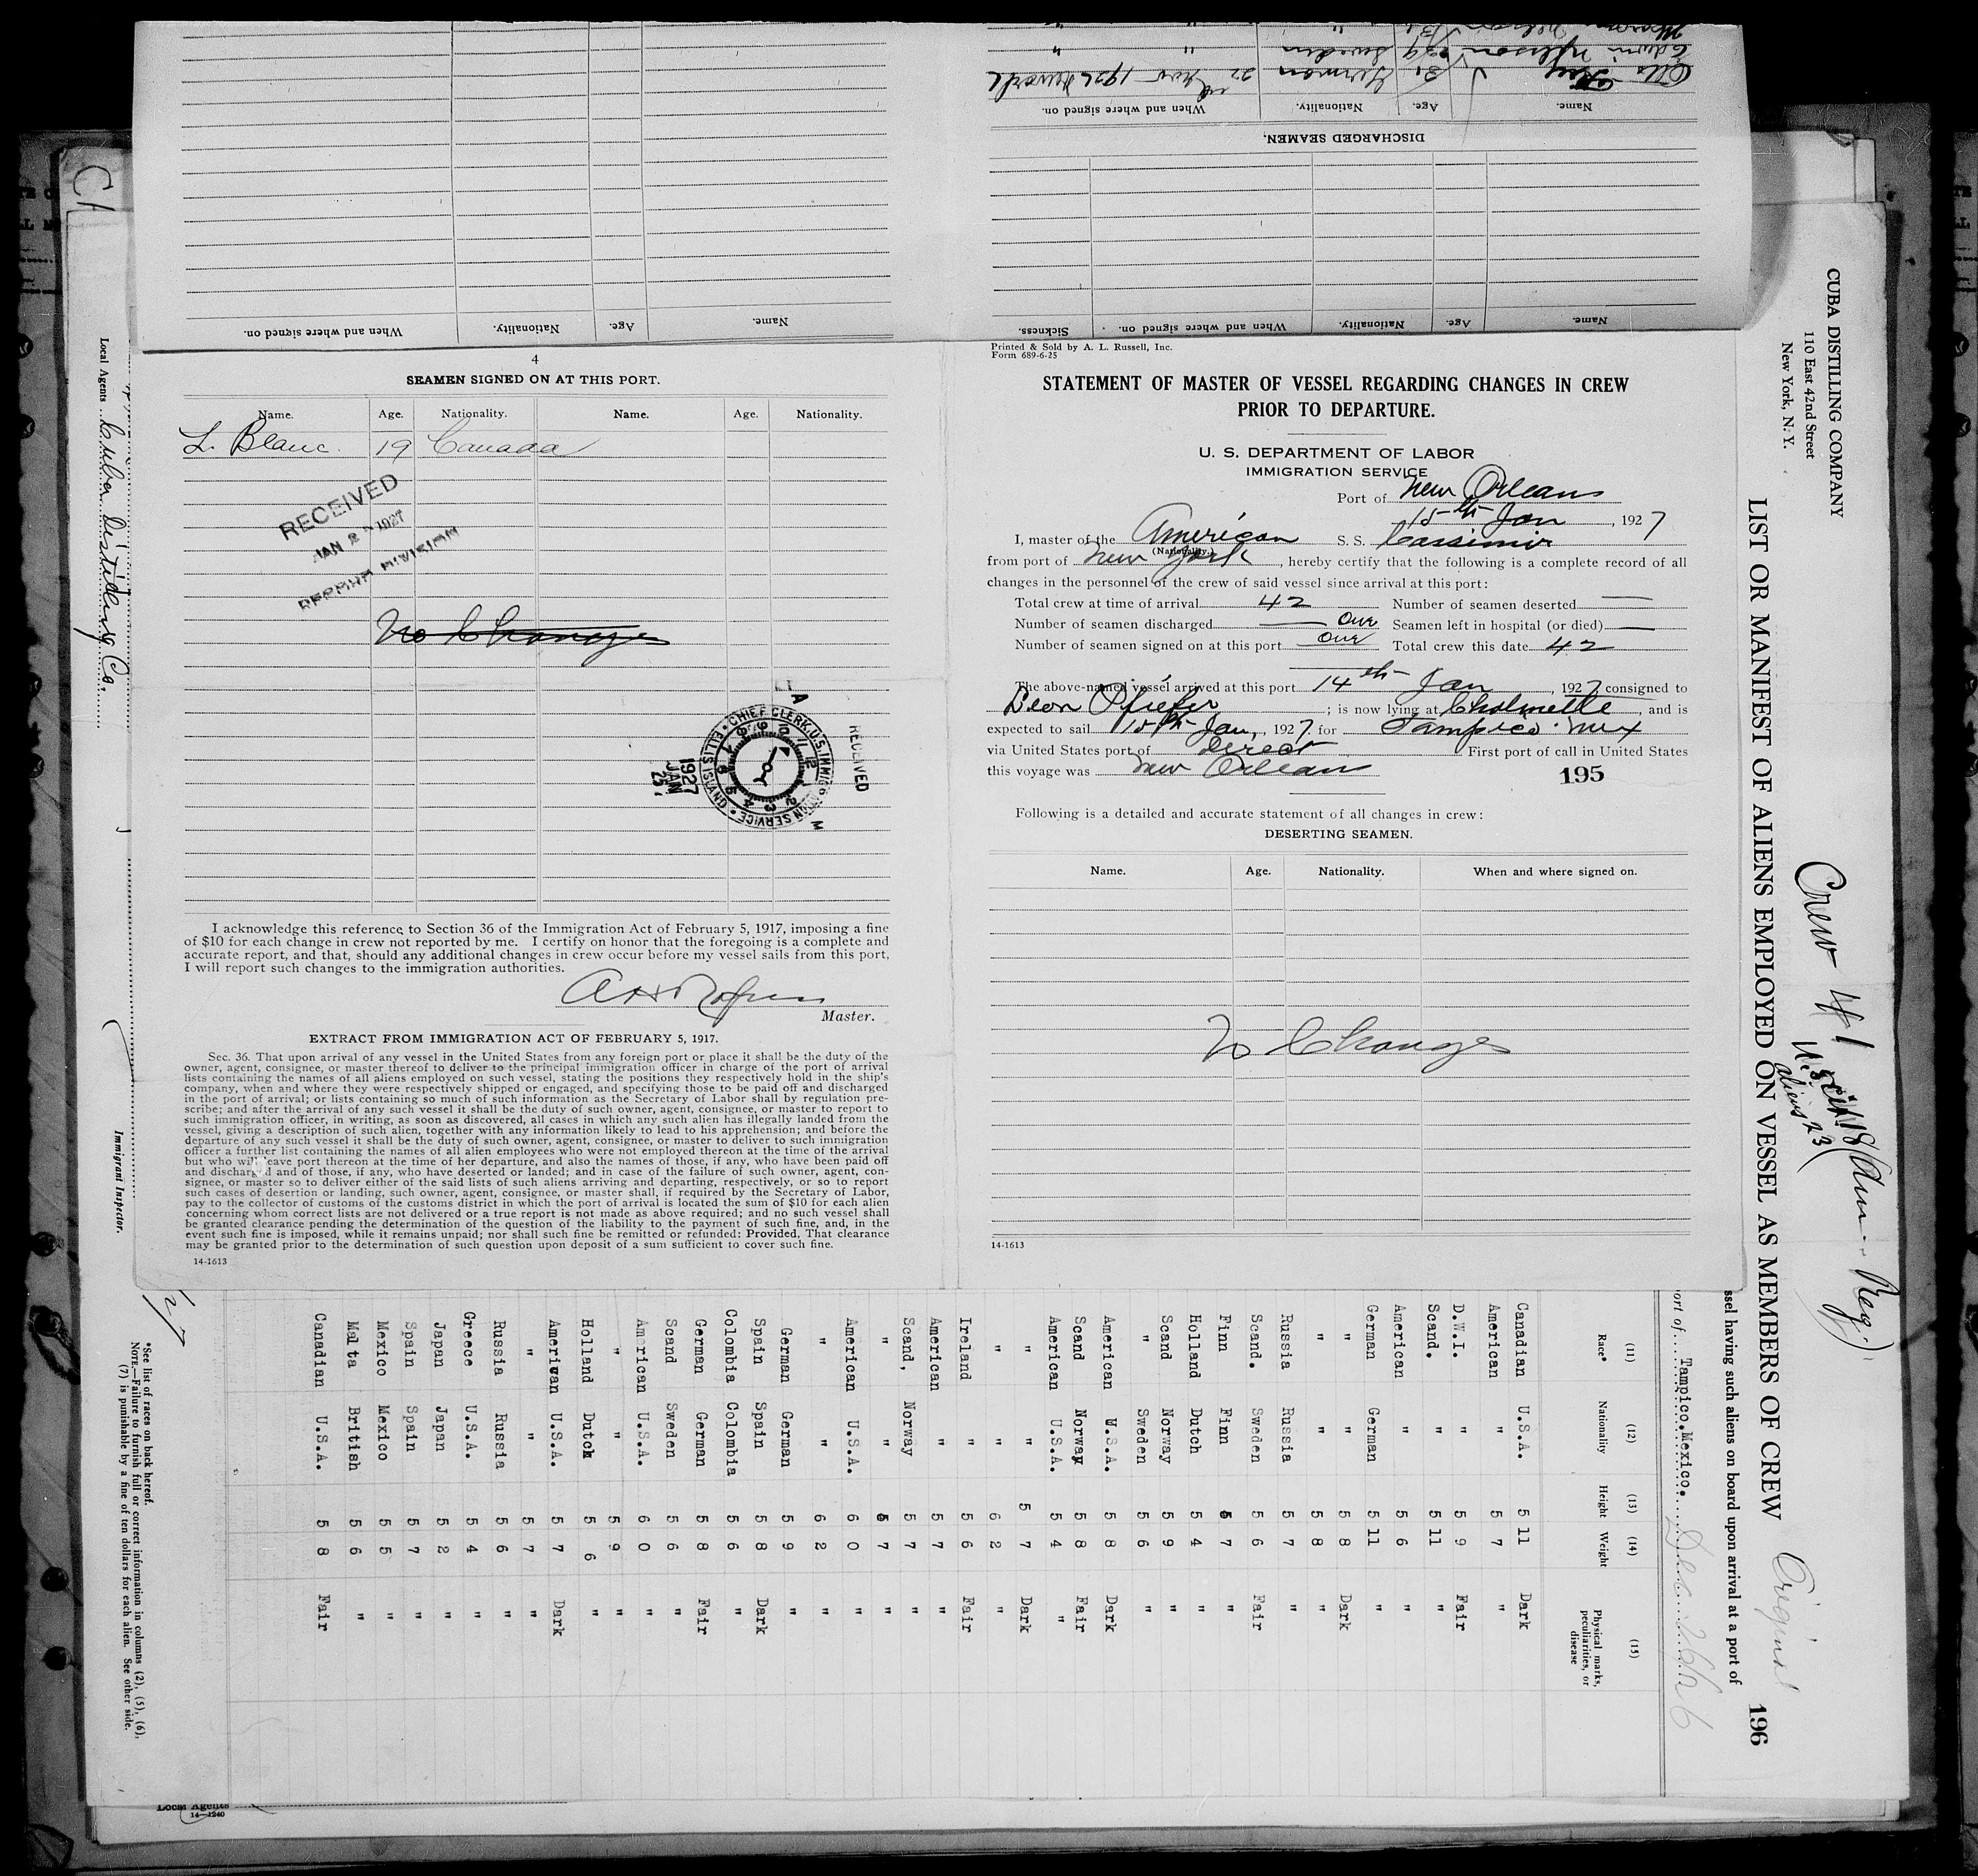 Edwin
Sweden
"
31
German
22 nov 1926 Newark
Name.
Age.
Nationality.
When and where signed on.
DISCHARGED SEAMEN,
Name.
Age.
Nationality.
When and where signed on.
Name.
Age.
Nationality.
When and where signed on.
Sickness.
4
SEAMEN SIGNED ON AT THIS PORT.
Name. Age. Nationality. Name. Age. Nationality.
L. Blanc. 19 Canada
RECEIVED
JAN 2 1927
DIVISION
No Changes
CHIEF CLERK, U.S. IMMIGRATION SERVICE
ELLIS ISLAND
RECEIVED
1927
JAN
25
A
M
I acknowledge this reference to Section 36 of the Immigration Act of February 5, 1917, imposing a fine
of $10 for each change in crew not reported by me. I certify on honor that the foregoing is a complete and
accurate report, and that, should any additional changes in crew occur before my vessel sails from this port,
I will report such changes to the immigration authorities.
Master.
EXTRACT FROM IMMIGRATION ACT OF FEBRUARY 5, 1917.
Sec. 36. That upon arrival of any vessel in the United States from any foreign port or place it shall be the duty of the
owner, agent, consignee, or master thereof to deliver to the principal immigration officer in charge of the port of arrival
lists containing the names of all aliens employed on such vessel, stating the positions they respectively hold in the ship's
company, when and where they were respectively shipped or engaged, and specifying those to be paid off and discharged
in the port of arrival; or lists containing so much of such information as the Secretary of Labor shall by regulation pre-
scribe; and after the arrival of any such vessel it shall be the duty of such owner, agent, consignee, or master to report to
such immigration officer, in writing, as soon as discovered, all cases in which any such alien has illegally landed from the
vessel, giving a description of such alien, together with any information likely to lead to his apprehension; and before the
departure of any such vessel it shall be the duty of such owner, agent, consignee, or master to deliver to such immigration
officer a further list containing the names of all alien employees who were not employed thereon at the time of the arrival
but who will leave port thereon at the time of her departure, and also the names of those, if any, who have been paid off
and discharged and of those, if any, who have deserted or landed; and in case of the failure of such owner, agent, con-
signee, or master so to deliver either of the said lists of such aliens arriving and departing, respectively, or so to report
such cases of desertion or landing, such owner, agent, consignee, or master shall, if required by the Secretary of Labor,
pay to the collector of customs of the customs district in which the port of arrival is located the sum of $10 for each alien
concerning whom correct lists are not delivered or a true report is not made as above required; and no such vessel shall
be granted clearance pending the determination of the question of the liability to the payment of such fine, and, in the
event such fine is imposed, while it remains unpaid; nor shall such fine be remitted or refunded: Provided, That clearance
may be granted prior to the determination of such question upon deposit of a sum sufficient to cover such fine.
14-1613
Printed & Sold by A. L. Russell, Inc.
Form 689-6-25
STATEMENT OF MASTER OF VESSEL REGARDING CHANGES IN CREW
PRIOR TO DEPARTURE.
U. S. DEPARTMENT OF LABOR
IMMIGRATION SERVICE
Port of New Orleans
15th Jan, 1927
I, master of the American S. S. Cassimir
(Nationality.)
from port of New York, hereby certify that the following is a complete record of all
changes in the personnel of the crew of said vessel since arrival at this port:
Total crew at time of arrival 42 Number of seamen deserted —
Number of seamen discharged — One Seamen left in hospital (or died) —
Number of seamen signed on at this port One Total crew this date 42
The above-named vessel arrived at this port 14th Jan, 1927 consigned to
Leon Pfiefer; is now lying at Chalmette, and is
expected to sail 15th Jan, 1927, for Tampico Mex
via United States port of Direct First port of call in United States
this voyage was New Orleans
195
Following is a detailed and accurate statement of all changes in crew:
DESERTING SEAMEN.
Name. Age. Nationality. When and where signed on.
No Changes
14-1613
CUBA DISTILLING COMPANY
110 East 42nd Street
New York, N. Y.
LIST OR MANIFEST OF ALIENS EMPLOYED ON VESSEL AS MEMBERS OF CREW
Original
196
Crew 41
U.S. cit. 18
aliens 23
(Am. Reg.)
ssel having such aliens on board upon arrival at a port of
ort of Tampico. Mexico. Dec 26
(11) (12) (13) (14) (15)
Race* Nationality Height Weight Physical marks, peculiarities, or disease
Canadian U.S.A. 5 11 Dark
American " 5 7 "
D.W.I. " 5 9 Fair
Scand. " 5 11 "
American " 5 6 "
German German 5 11 "
" " 5 8 Dark
" " 5 8 "
Russia Russia 5 7 "
Scand. Sweden 5 6 Fair
Finn Finn 5 7 "
Holland Dutch 5 4 "
Scand Norway 5 9 "
" Sweden 5 6 "
American U.S.A. 5 8 Dark
Scand Norway 5 8 Fair
American U.S.A. 5 4 "
" " 5 7 Dark
" " 6 2
Ireland " 5 6 Fair
American " 5 7 "
Scand, Norway 5 7 "
" " 5 7 "
American U.S.A. 6 0 "
" " 6 2 "
German German 5 9 "
Spain Spain 5 8 Dark
Colombia Colombia 5 6 "
German German 5 8 Fair
Scand Sweden 5 6 "
American U.S.A. 6 0 "
" " 5 9 "
Holland Dutch 5 6 "
American U.S.A. 5 7 Dark
" " 5 7 "
Russia Russia 5 6 "
Greece U.S.A. 5 4 "
Japan Japan 5 2 "
Spain Spain 5 7 "
Mexico Mexico 5 5 "
Malta British 5 6 "
Canadian U.S.A. 5 8 Fair
Local Agents Cuba Distilling Co.
Immigrant Inspector.
*See list of races on back hereof.
NOTE.—Failure to furnish full or correct information in columns (2), (5), (6),
(7) is punishable by a fine of ten dollars for each alien. See other side.
Local Agents
14—1240